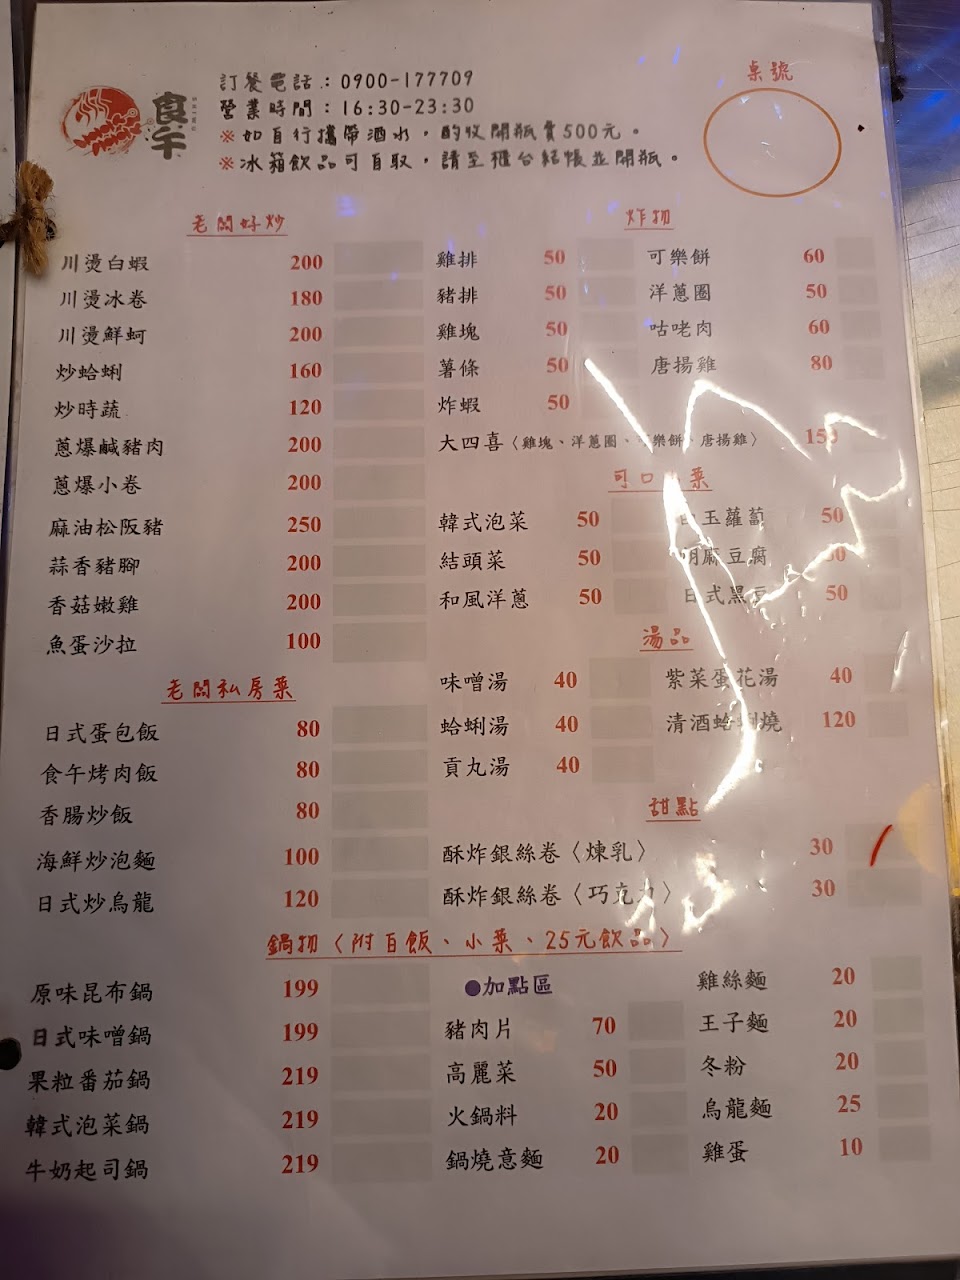 食午
訂餐電話：0900-177709
營業時間：16:30-23:30
※如自行攜帶酒水，酌收開瓶費500元。
※冰箱飲品可自取，請至櫃台結帳並開瓶。
桌號
老闆好炒
川燙白蝦 200
川燙冰卷 180
川燙鮮蚵 200
炒蛤蜊 160
炒時蔬 120
蔥爆鹹豬肉 200
蔥爆小卷 200
麻油松阪豬 250
蒜香豬腳 200
香菇嫩雞 200
魚蛋沙拉 100
老闆私房菜
日式蛋包飯 80
食午烤肉飯 80
香腸炒飯 80
海鮮炒泡麵 100
日式炒烏龍 120
炸物
雞排 50 可樂餅 60
豬排 50 洋蔥圈 50
雞塊 50 咕咾肉 60
薯條 50 唐揚雞 80
炸蝦 50
大四喜〈雞塊、洋蔥圈、可樂餅、唐揚雞〉 15
可口 菜
韓式泡菜 50 玉蘿蔔 50
結頭菜 50 麻豆腐 50
和風洋蔥 50 日式黑豆 50
湯品
味噌湯 40 紫菜蛋花湯 40
蛤蜊湯 40 清酒蛤蜊燒 120
貢丸湯 40
甜點
酥炸銀絲卷〈煉乳〉 30
酥炸銀絲卷〈巧克力〉 30
鍋物〈附百飯、小菜、25元飲品〉
原味昆布鍋 199
日式味噌鍋 199
果粒番茄鍋 219
韓式泡菜鍋 219
牛奶起司鍋 219
●加點區
豬肉片 70
高麗菜 50
火鍋料 20
鍋燒意麵 20
雞絲麵 20
王子麵 20
冬粉 20
烏龍麵 25
雞蛋 10